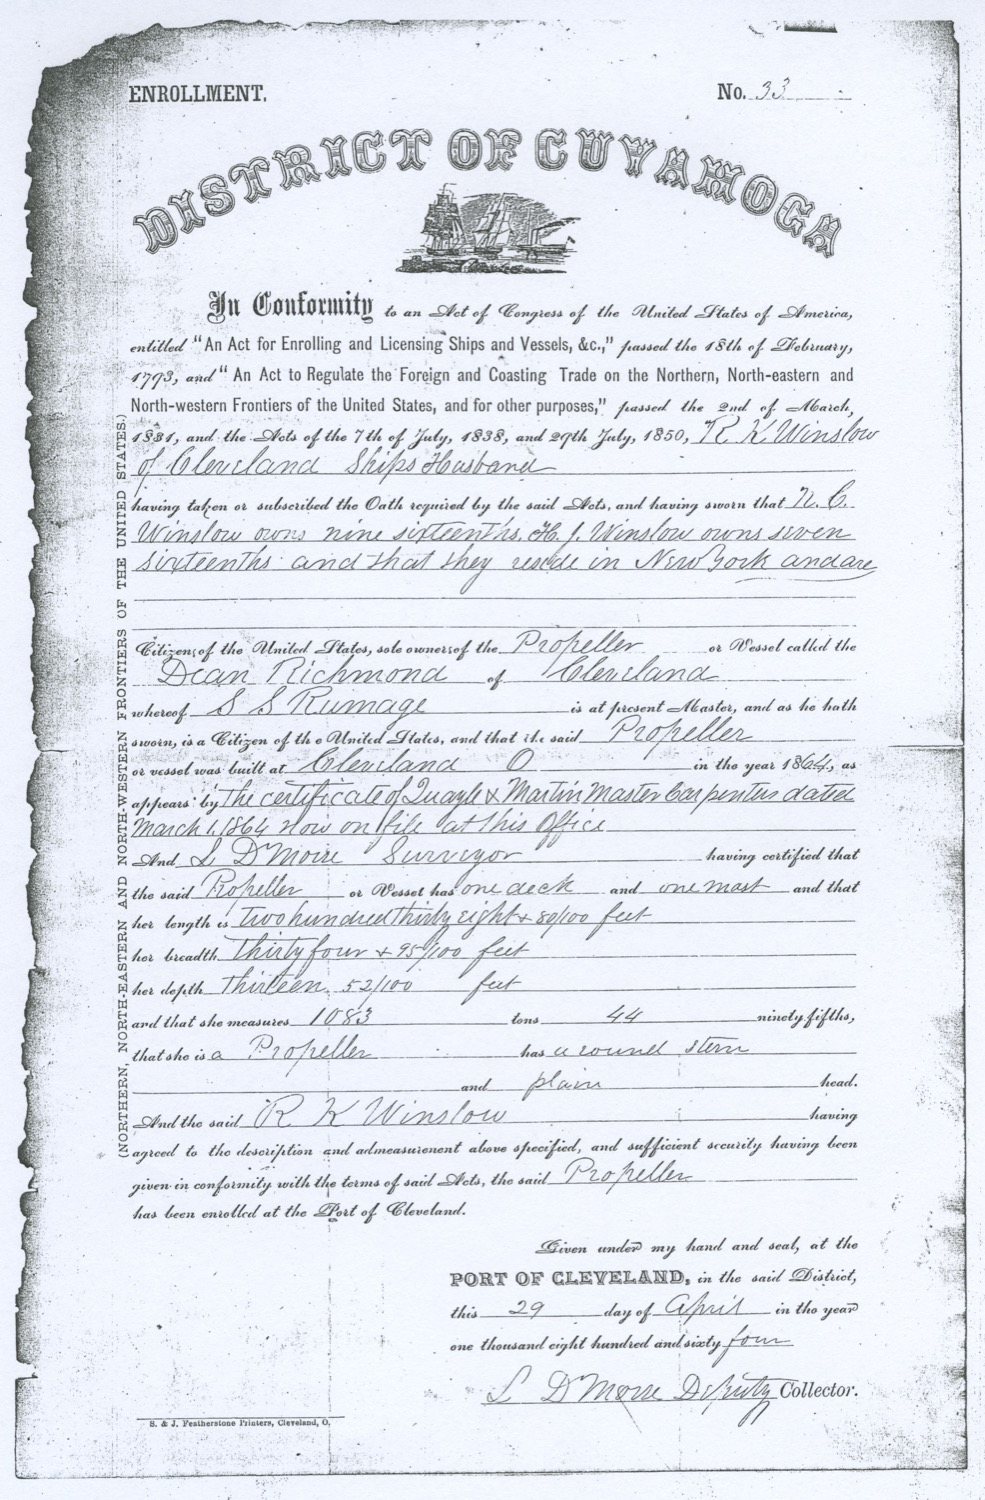 ENROLLMENT.
No. 33
DISTRICT OF CUYAHOGA
In Conformity to an Act of Congress of the United States of America,
entitled "An Act for Enrolling and Licensing Ships and Vessels, &c.," passed the 18th of February,
1793, and "An Act to Regulate the Foreign and Coasting Trade on the Northern, North-eastern and
North-western Frontiers of the United States, and for other purposes," passed the 2nd of March,
1831, and the Acts of the 7th of July, 1838, and 29th July, 1850, R K Winslow
of Cleveland Ships Husband
having taken or subscribed the Oath required by the said Acts, and having sworn that N. C.
Winslow owns nine sixteenths, H. J. Winslow owns seven
sixteenths and that they reside in New York and are
Citizens of the United States, sole owners of the Propeller or Vessel called the
Dean Richmond of Cleveland
whereof S S Rumage is at present Master, and as he hath
sworn, is a Citizen of the United States, and that the said Propeller
or vessel was built at Cleveland O in the year 1864, as
appears by The certificate of Quayle & Martin Master Carpenters dated
March 1, 1864 now on file at this Office
And L D'Moire Surveyor having certified that
the said Propeller or Vessel has one deck and one mast and that
her length is two hundred thirty eight & 80/100 feet
her breadth Thirty four & 95/100 feet
her depth Thirteen 52/100 feet
and that she measures 1083 tons 44 ninety fifths,
that she is a Propeller has a round stern
and plain head.
And the said R K Winslow having
agreed to the description and admeasurement above specified, and sufficient security having been
given in conformity with the terms of said Acts, the said Propeller
has been enrolled at the Port of Cleveland.
Given under my hand and seal, at the
PORT OF CLEVELAND, in the said District,
this 29 day of April in the year
one thousand eight hundred and sixty four
L D'Moire Deputy Collector.
S. & J. Featherstone Printers, Cleveland, O.
(NORTHERN, NORTH-EASTERN AND NORTH-WESTERN FRONTIERS OF THE UNITED STATES.)